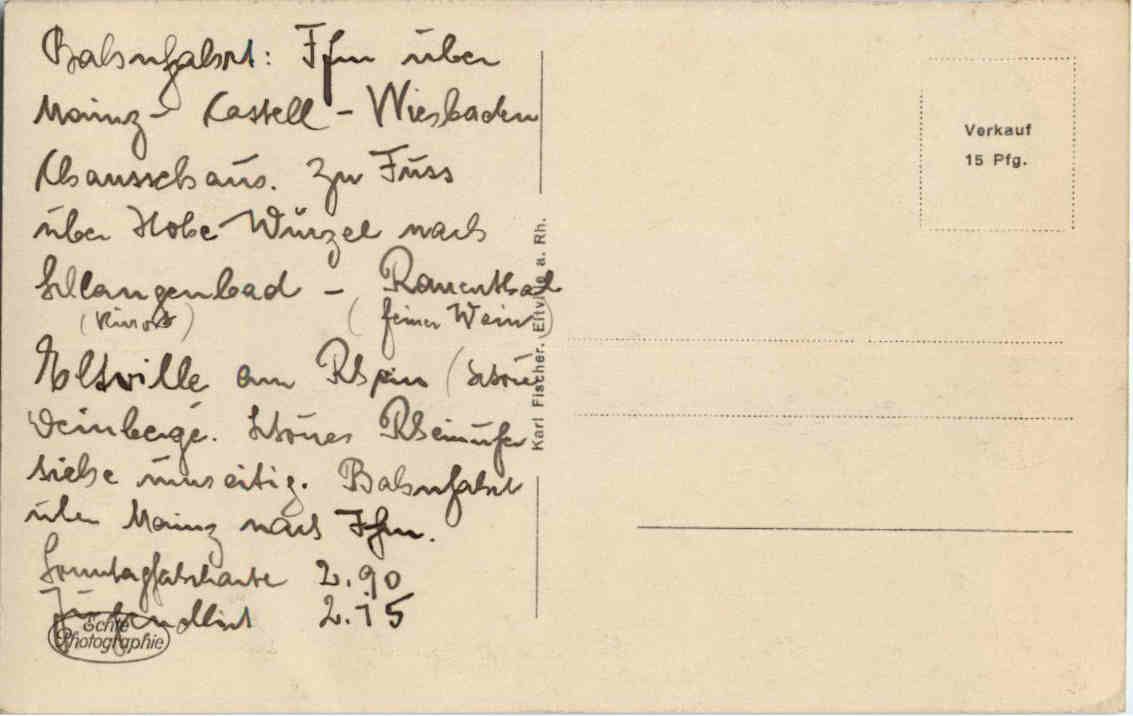 Bahnfahrt: Ffm über
Mainz - Castell - Wiesbaden
Chausseehaus. Zu Fuss
über Hohe Wurzel nach
Schlangenbad - Rauenthal
(Kurort) (feiner Wein)
Eltville am Rhein (schöne
Weinberge. Schönes Rheinufer
siehe umseitig. Bahnfahrt
über Mainz nach Ffm.
Sonntagfahrkarte 2.90
2.15
Echte
Photographie
Karl Fischer, Eltville a. Rh.
Verkauf
15 Pfg.